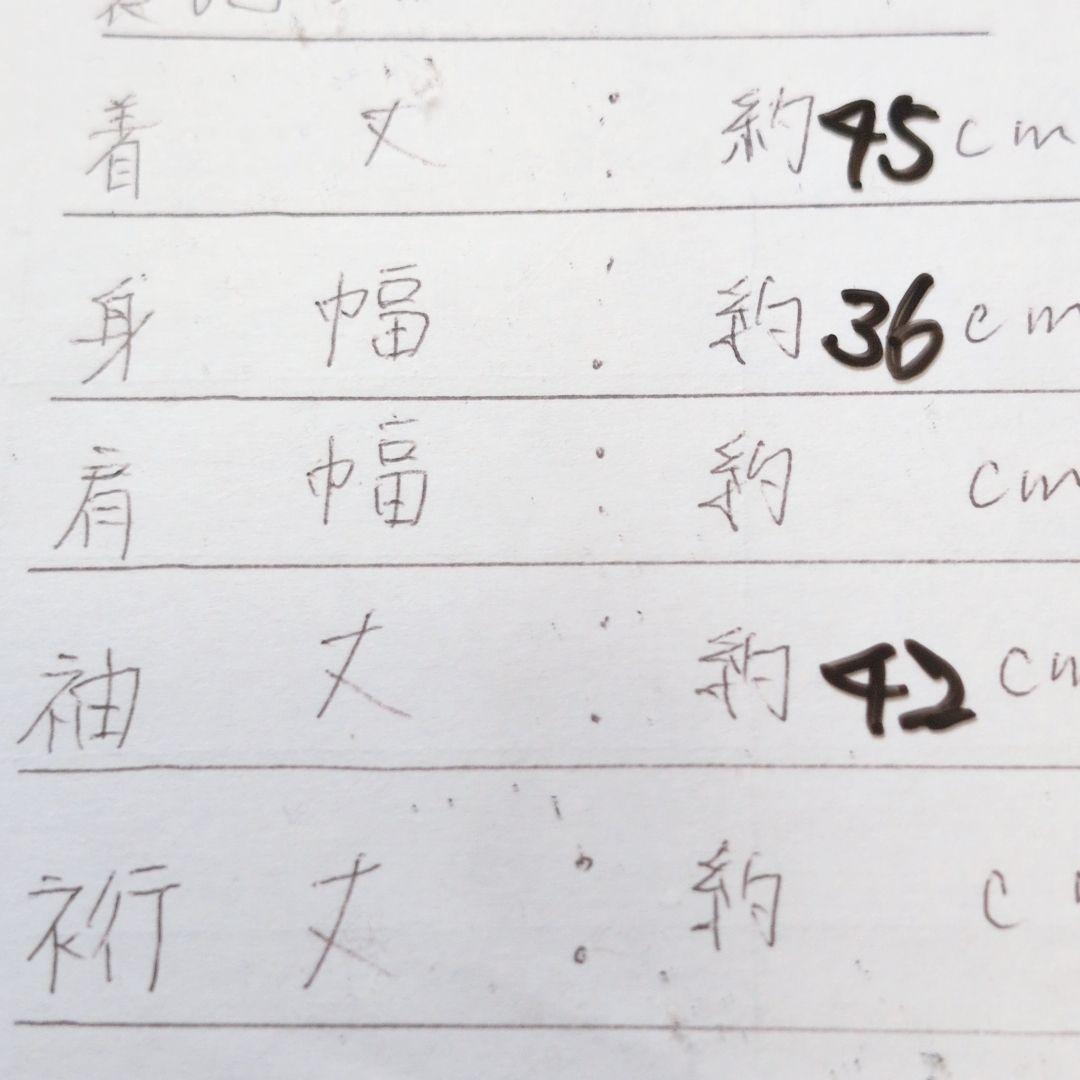 着 丈 : 約45cm
身 幅 : 約36cm
肩 幅 : 約 cm
袖 丈 : 約42cm
裄 丈 : 約 c